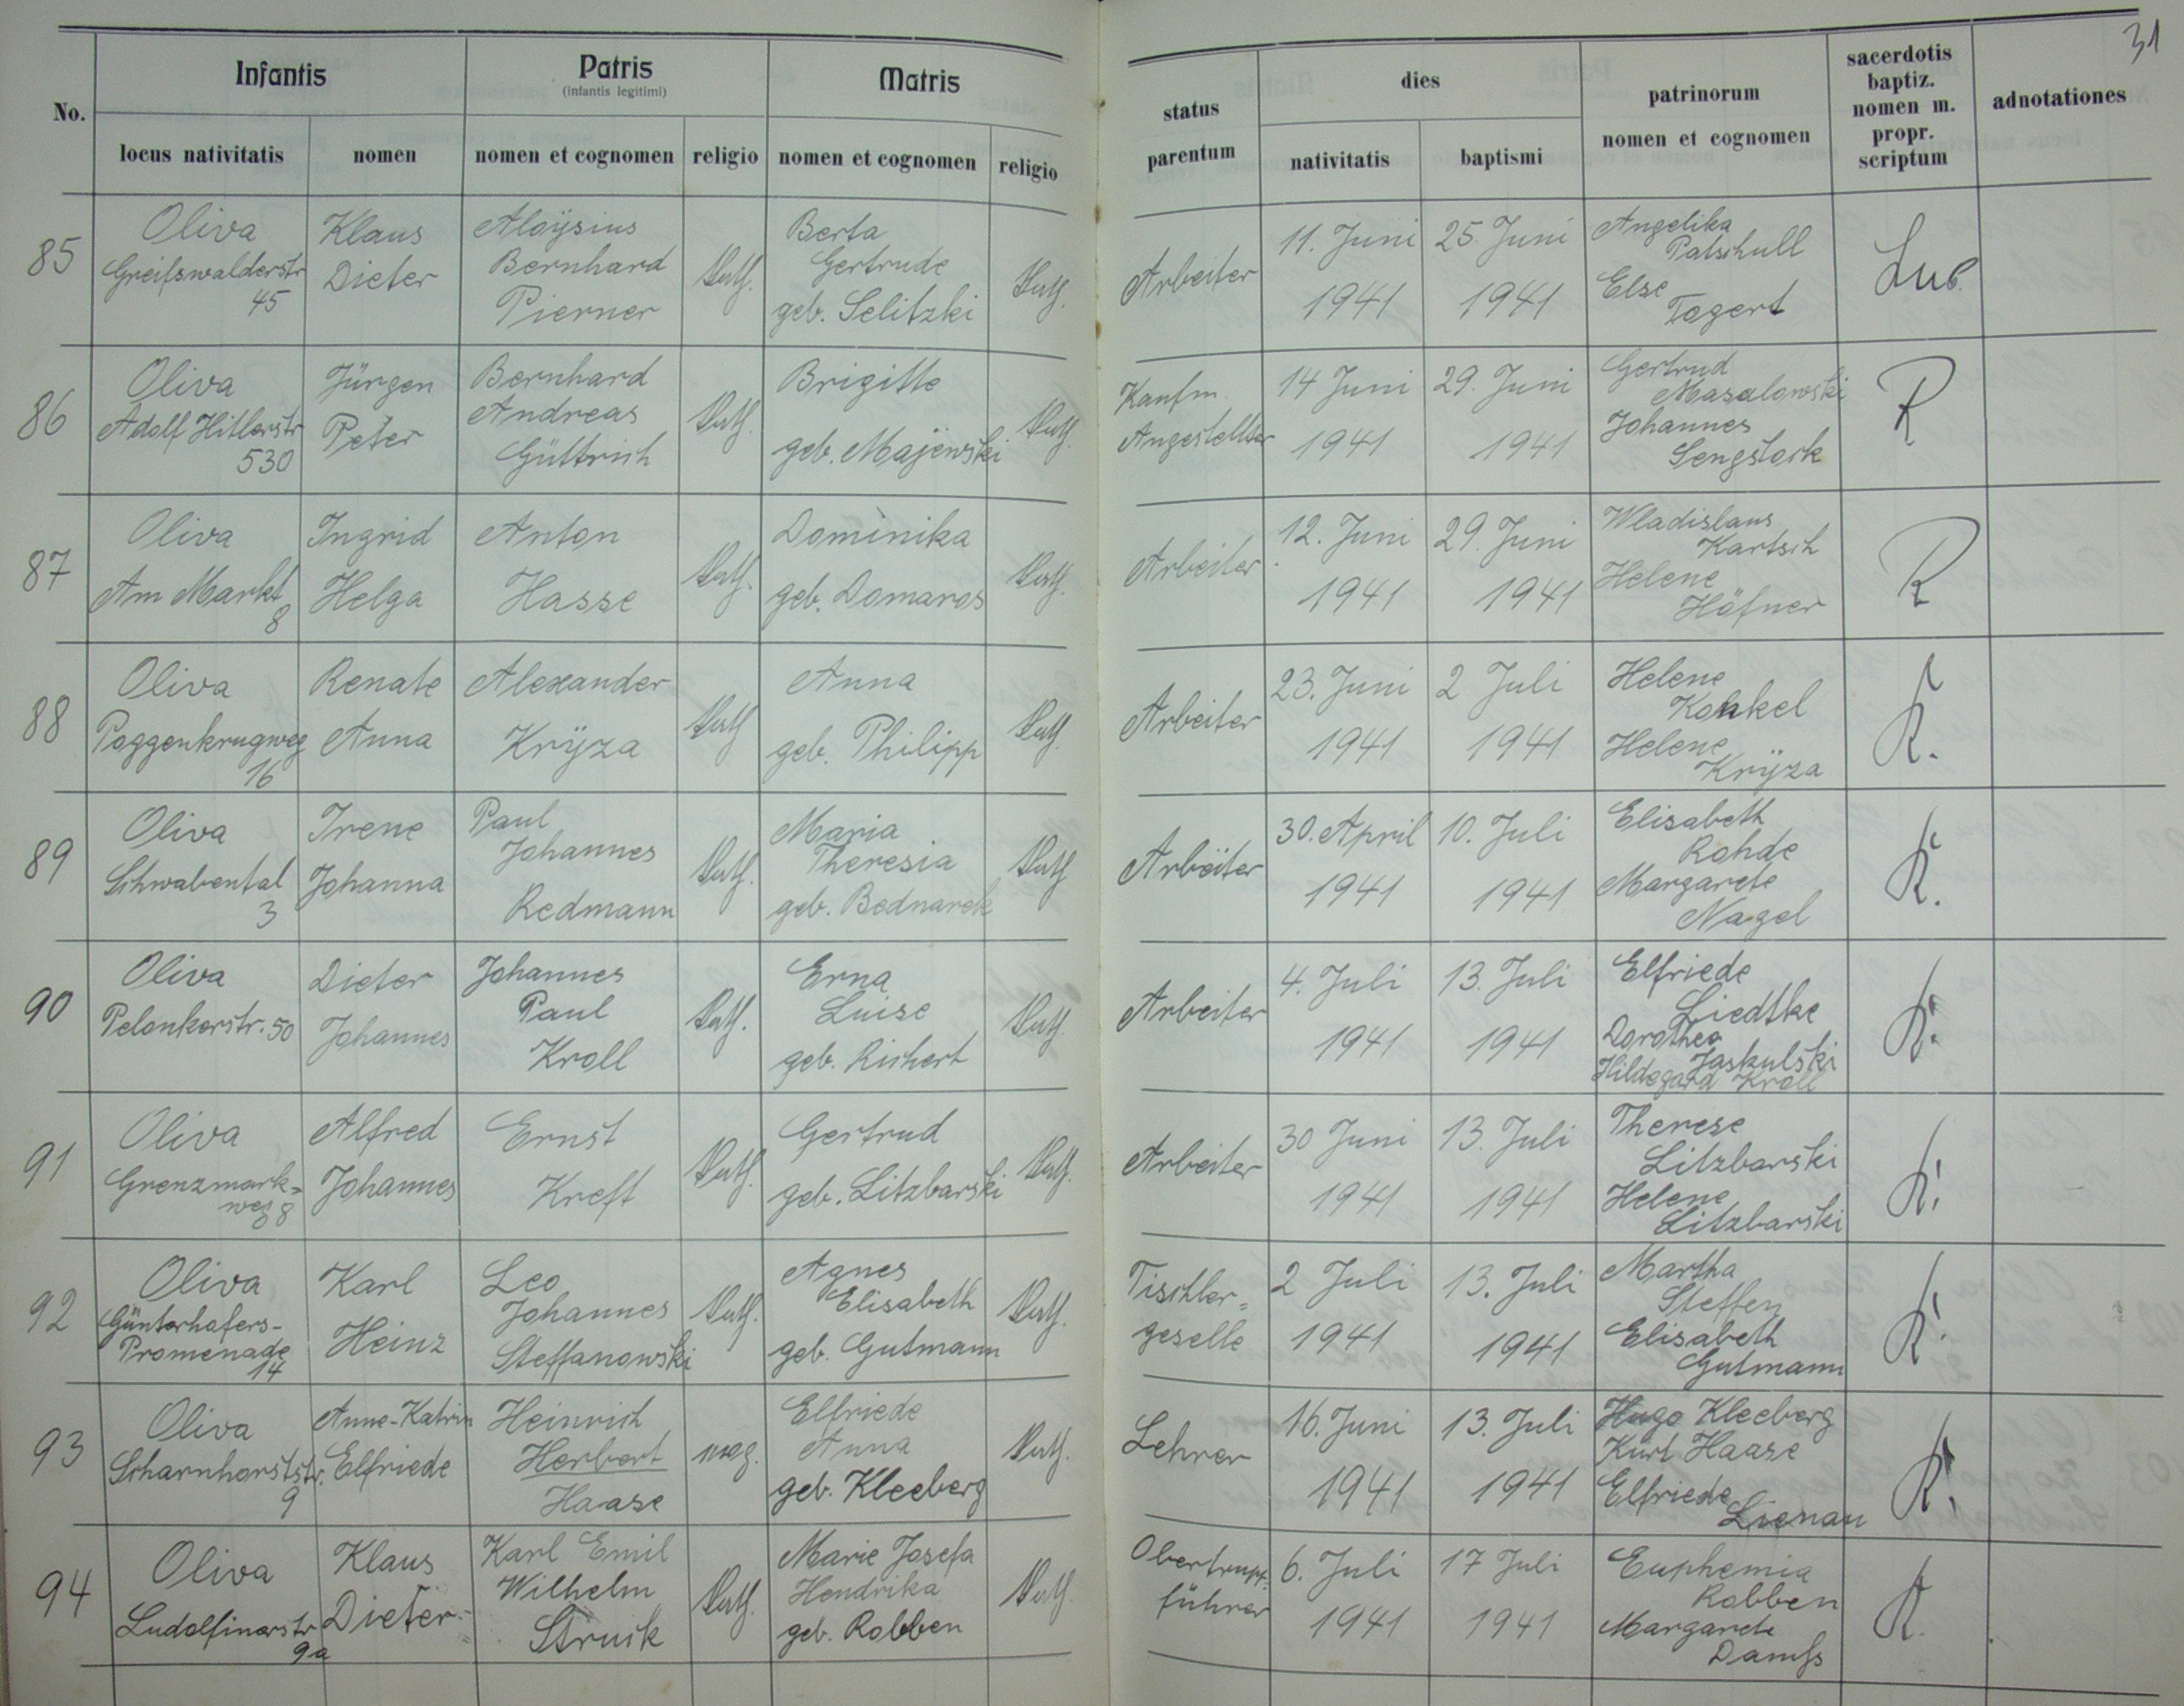 31
No.
Infantis
Patris
(infantis legitimi)
Matris
status parentum
dies
patrinorum
nomen et cognomen
sacerdotis
baptiz.
nomen m.
propr.
scriptum
adnotationes
locus nativitatis
nomen
nomen et cognomen
religio
nomen et cognomen
religio
nativitatis
baptismi
85
Oliva
Greifswalderstr
45
Klaus
Dieter
Aloÿsius
Bernhard
Pierner
kath.
Berta
Gertrude
geb. Selitzki
kath.
Arbeiter
11. Juni
1941
25. Juni
1941
Angelika
Patschull
Else
Togert
Lub.
86
Oliva
Adolf Hitlerstr
530
Jürgen
Peter
Bernhard
Andreas
Güttrich
kath.
Brigitte
geb. Majewski
kath.
Kaufm.
Angestellter
14 Juni
1941
29. Juni
1941
Gertrud
Masalowski
Johannes
Sengstock
R
87
Oliva
Am Markt
8
Ingrid
Helga
Anton
Hasse
kath.
Dominika
geb. Domaros
kath.
Arbeiter
12. Juni
1941
29. Juni
1941
Wladislaus
Kartsch
Helene
Höfner
R
88
Oliva
Poggenkrugweg
16
Renate
Anna
Alexander
Krÿza
kath
Anna
geb. Philipp
kath.
Arbeiter
23. Juni
1941
2 Juli
1941
Helene
Konkel
Helene
Krÿza
K.
89
Oliva
Schwabental
3
Irene
Johanna
Paul
Johannes
Redmann
kath.
Maria
Theresia
geb. Bednarek
kath
Arbeiter
30. April
1941
10. Juli
1941
Elisabeth
Rohde
Margarete
Nagel
K.
90
Oliva
Pelonkerstr. 50
Dieter
Johannes
Johannes
Paul
Kroll
kath.
Erna
Luise
geb. Richert
kath.
Arbeiter
4. Juli
1941
13. Juli
1941
Elfriede
Liedtke
Dorothea
Jaskulski
Hildegard Kroll
K.
91
Oliva
Grenzmark-
weg 8
Alfred
Johannes
Ernst
Kreft
kath.
Gertrud
geb. Litzbarski
kath.
Arbeiter
30 Juni
1941
13. Juli
1941
Therese
Litzbarski
Helene
Litzbarski
K.
92
Oliva
Günterhofers-
Promenade
14
Karl
Heinz
Leo
Johannes
Steffanowski
kath.
Agnes
Elisabeth
geb. Gutmann
kath.
Tischler-
geselle
2 Juli
1941
13. Juli
1941
Martha
Steffen
Elisabeth
Gutmann
K.
93
Oliva
Scharnhorststr.
9
Anne-Katrin
Elfriede
Heinrich
Herbert
Haase
Elfriede
Anna
geb. Kleeberg
kath.
Lehrer
16. Juni
1941
13. Juli
1941
Hugo Kleeberg
Kurt Haase
Elfriede
Lienau
K.
94
Oliva
Ludolfinerstr
9a
Klaus
Dieter
Karl Emil
Wilhelm
Struik
kath.
Marie Josefa
Hendrika
geb. Robben
kath.
Obertrupp-
führer
6. Juli
1941
17 Juli
1941
Euphemia
Robben
Margarete
K.